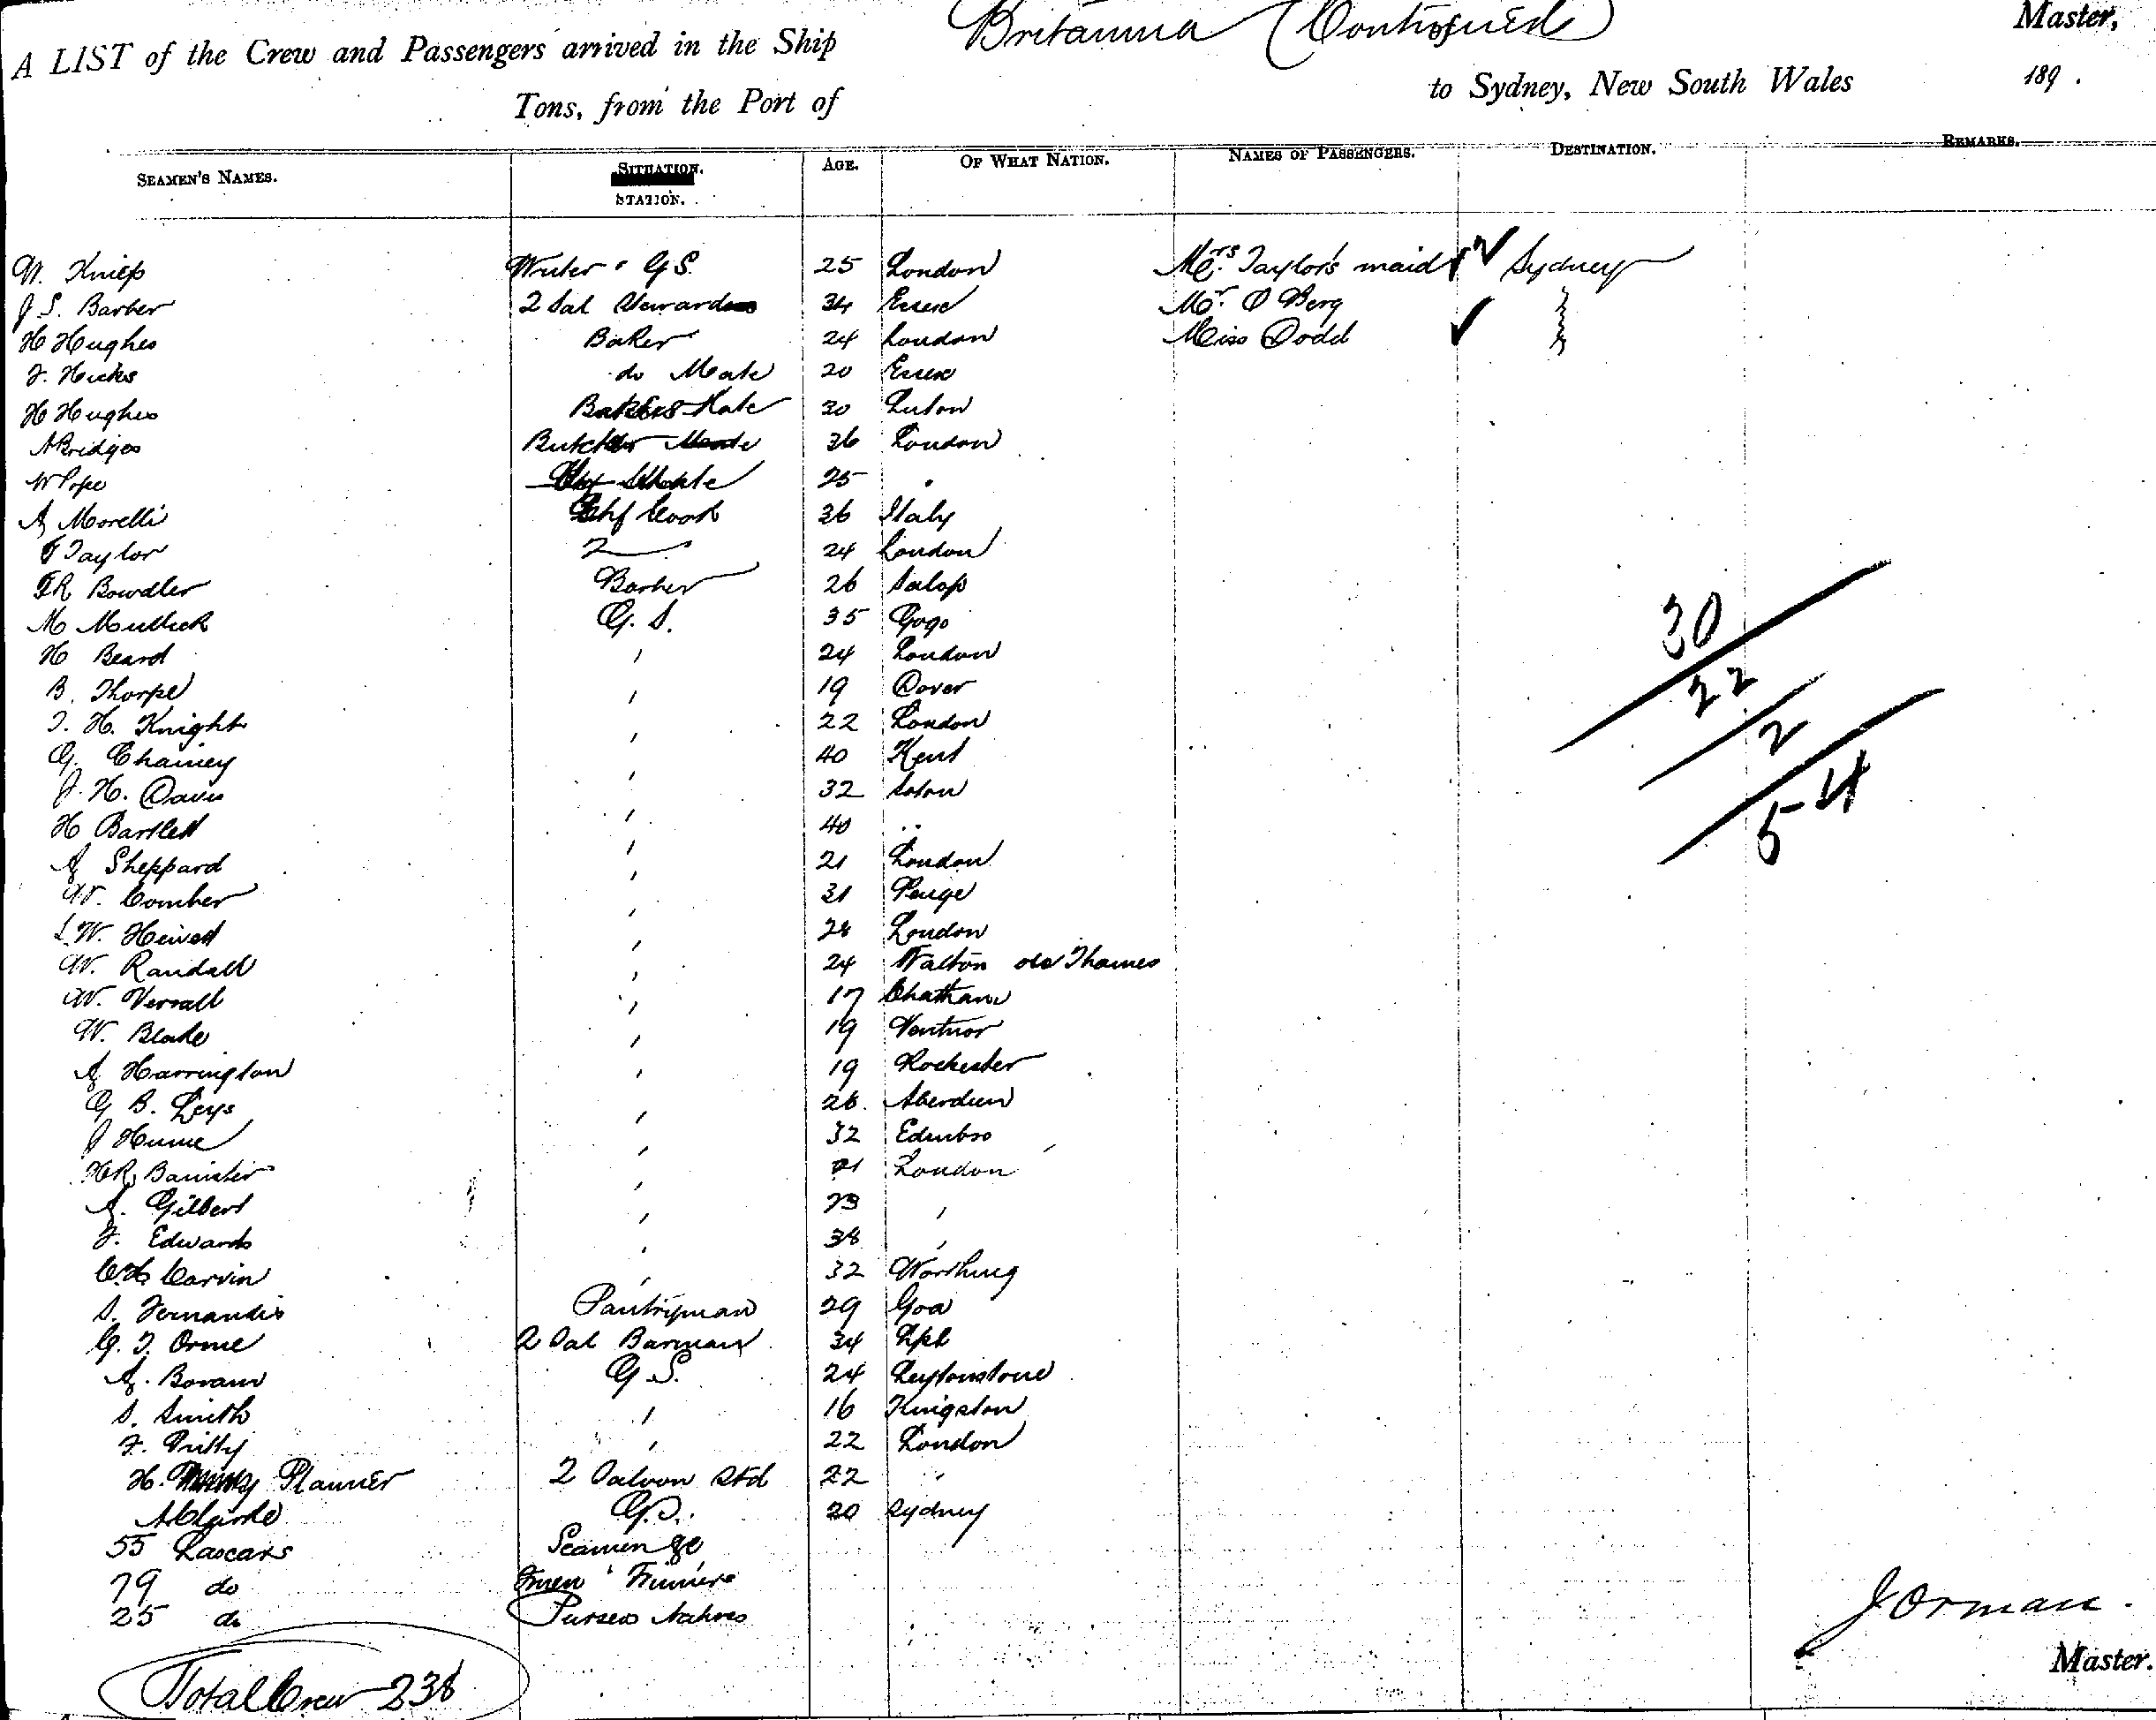 Britannia (Continued)
Master,
A LIST of the Crew and Passengers arrived in the Ship
Tons, from the Port of
to Sydney, New South Wales 189 .
SEAMEN'S NAMES. SITUATION. STATION. AGE. OF WHAT NATION. NAMES OF PASSENGERS. DESTINATION. REMARKS.
W. Writer " G S. 25 London Mrs. Taylor's maid Sydney
J S. Barber 2 Sal Steward 34 Essex Mr. O Berg
H Hughes Baker 24 London Miss Dodd
F. Hicks do Mate 20 Essex
H Hughes Bakers Mate 30 Luton
A Bridges Butcher 36 London
W Pope 25 "
A Morelli Chf Cook 36 Italy
F Taylor 2 24 London
F R Bowdler Barber 26 Salop
M Mullick G. S. 35 Gogo
H Beard " 24 London
B. Thorpe " 19 Dover
T. H. Knight " 22 London
G. Chainey " 40 Kent
J. H. Davis " 32 Soton
H Bartlett " 40 "
A Sheppard " 21 London
W. Comber " 31 Penge
W. " 28 London
W. Randall " 24 Walton on Thames
W. Verrall " 17 Chatham
W. Blake " 19 Ventnor
A Harrington " 19 Rochester
G B. Leys " 26 Aberdeen
J Hume " 32 Edinbro
H R Banister " 21 London
A. Gilbert " 23 "
F. Edwards " 38 "
C. H. Carvin " 32 Worthing
S. Fernandis Pantryman 29 Goa
G. T. Orme 2 Sal Barman 34 Lpl
A. Boram G S. 24 Leytonstone
S. Smith " 16 Kingston
F. Pritty " 22 London
H. Planner 2 Saloon Std 22 "
G. S. 20 Sydney
55 Lascars Seamen &c
79 do Fmen " Trimmers
25 do Pursers Natives
Total Crew 238
30
22
2
54
J Orman.
Master.